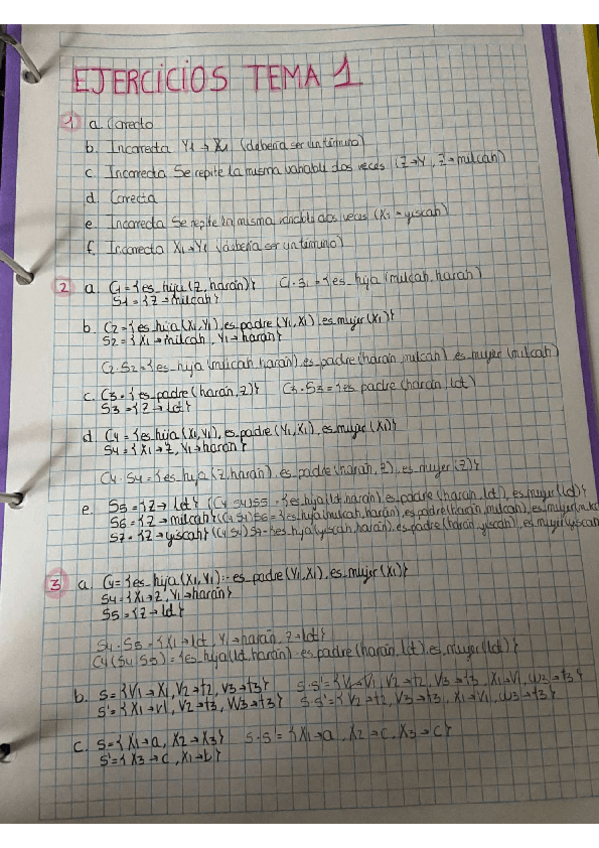 EJERCICIOS TEMA 1
1 a. Correcto
b. Incorrecta Y1 → X1 (debería ser un término)
c. Incorrecta Se repite la misma variable dos veces (Z→Y, Z→milcah)
d. Correcta
e. Incorrecta Se repite la misma variable dos veces (X1→yiscah)
f. Incorrecta X1→Y1 (debería ser un término)
2 a. C1 = {es_hija (Z, harán)} C1·S1 = {es_hija (milcah, harah)
S1 = {Z→milcah}
b. C2 = {es_hija (X1, Y1), es_padre (Y1, X1), es_mujer (X1)}
S2 = {X1→milcah, Y1→harán}
C2·S2 = {es_hija (milcah, harán), es_padre (harán, milcah) es_mujer (milcah)
c. C3 = {es_padre (harán, Z)} C3·S3 = {es padre (harán, lot)
S3 = {Z→lot}
d C4 = {es_hija (X1, Y1), es_padre (Y1, X1), es_mujer (X1)}
S4 = {X1→Z, Y1→harán}
C4·S4 = {es_hija (Z, harán), es_padre (harán, Z), es_mujer (Z)}
e. S5 = {Z→lot} (C4 S4)S5 = {es_hija (lot, harán), es_padre (harán, lot), es_mujer (lot)}
S6 = {Z→milcah} (C4 S4)S6 = {es_hija (milcah, harán), es_padre (harán, milcah), es_mujer
S7 = {Z→yiscah} (C4 S4) S7 = {es_hija (yiscah, harán), es_padre (harán, yiscah), es_mujer (yiscah
3 a. C4 = {es_hija (X1, Y1) :- es_padre (Y1, X1), es_mujer (X1)}
S4 = {X1→Z, Y1→harán}
S5 = {Z→lot}
S4·S5 = {X1→lot, Y1→harán, Z→lot}
C4 (S4 S5) = {es_hija (lot, harán) :- es_padre (harán, lot), es_mujer (lot)}
b. S = {V1→X1, V2→t2, V3→t3} S·S' = {V1→V1, V2→t2, V3→t3, X1→V1,
S' = {X1→V1, V2→t3, W3→t3} S·S' = {V2→t2, V3→t3, X1→V1, W3→t3}
c. S = {X1→a, X2→X3} S·S' = {X1→a, X2→c, X3→c}
S' = {X3→c, X1→b}